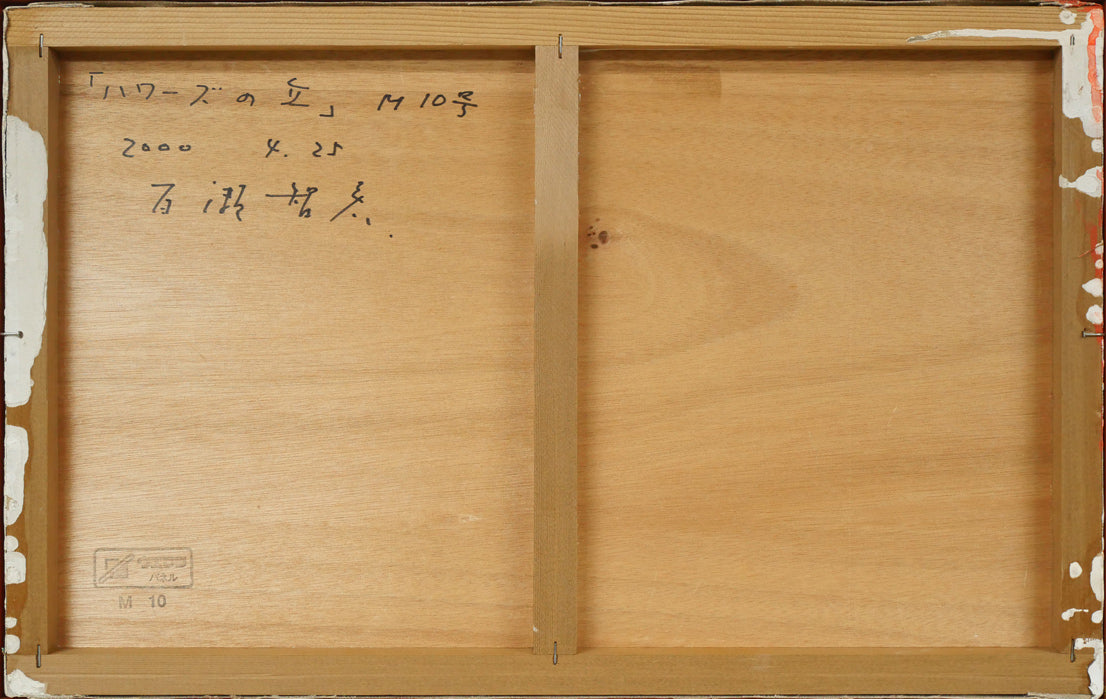 「ハワーズの丘」 M 10号
2000 4. 25
百瀬智宏
パネル
M 10